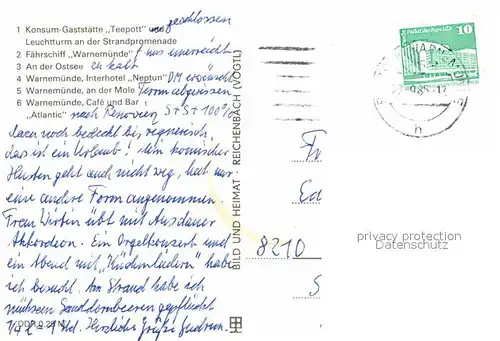 1 Konsum-Gaststätte „Teepott" und geschlossen
Leuchtturm an der Strandpromenade
2 Fährschiff „Warnemünde" uns unerreicht
3 An der Ostsee ich kalt
4 Warnemünde, Interhotel „Neptun" DM erwünscht
5 Warnemünde, an der Mole Ferm abgewiesen
6 Warnemünde, Café und Bar
„Atlantic" nach Renovierg S+S+100%
dazu noch bedeckt bis regnerisch,
das ist ein Urlaub! Mein komischer
Husten geht auch nicht weg, hat nur
eine andere Form angenommen.
Frau Wirtin übt mit Ausdauer
Akkordeon. Ein Orgelkonzert und
ein Abend mit „Küchenliedern" habe
ich besucht. Am Strand habe ich
mühsam Sanddornbeeren gepflückt
1/4 l = 1 Std. Herzliche Grüße Gudrun.
DDR 0,25 M
BILD UND HEIMAT REICHENBACH (VOGTL)
10
h
Fr
Ed
8210
S
privacy protection
Datenschutz